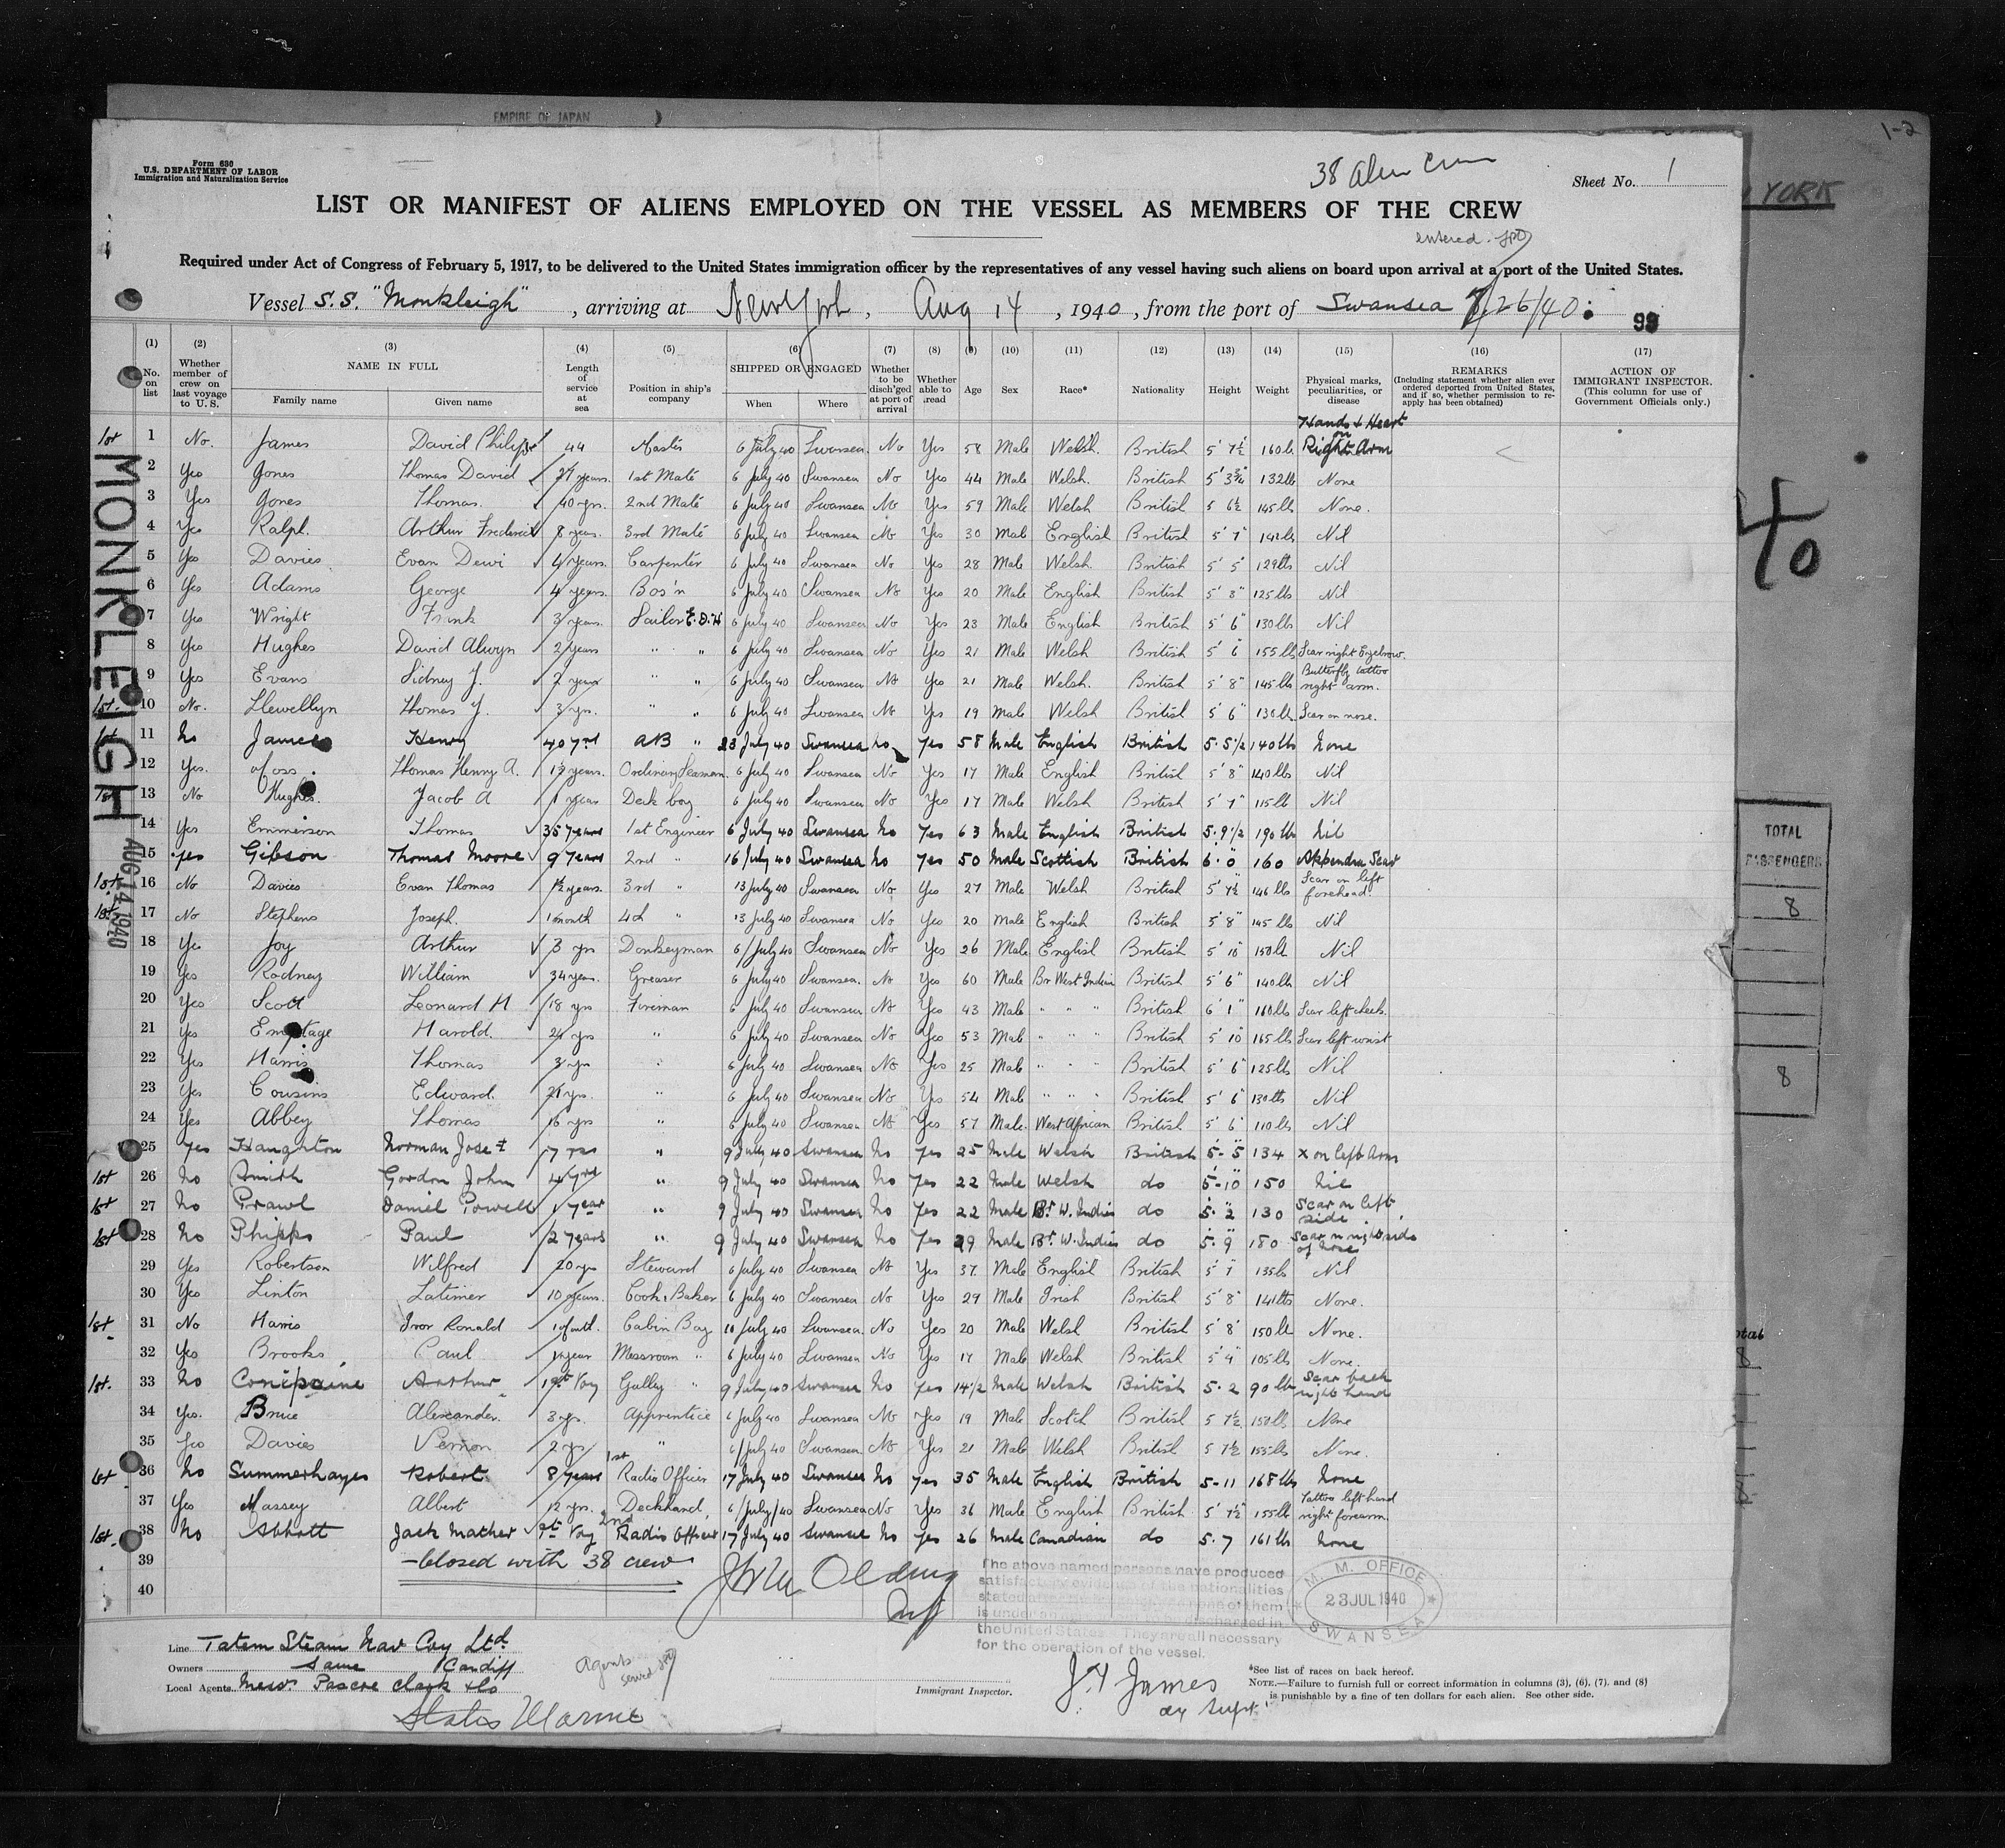 EMPIRE OF JAPAN
1-2
Form 680
U.S. DEPARTMENT OF LABOR
Immigration and Naturalization Service
38 Alien Crew
Sheet No. 1
YORK
LIST OR MANIFEST OF ALIENS EMPLOYED ON THE VESSEL AS MEMBERS OF THE CREW
entered
Required under Act of Congress of February 5, 1917, to be delivered to the United States immigration officer by the representatives of any vessel having such aliens on board upon arrival at a port of the United States.
Vessel S.S. "Monkleigh", arriving at New York, Aug 14, 1940, from the port of Swansea 7/26/40
(1) No. on list (2) Whether member of crew on last voyage to U.S. (3) NAME IN FULL Family name Given name (4) Length of service at sea (5) Position in ship's company (6) SHIPPED OR ENGAGED When Where (7) Whether to be disch'ged at port of arrival (8) Whether able to read (9) Age (10) Sex (11) Race* (12) Nationality (13) Height (14) Weight (15) Physical marks, peculiarities, or disease (16) REMARKS (Including statement whether alien ever ordered deported from United States, and if so, whether permission to re-apply has been obtained) (17) ACTION OF IMMIGRANT INSPECTOR. (This column for use of Government Officials only.)
MONKLEIGH AUG 14 1940
1st 1 No. James David Philip 44 Master 6 July 40 Swansea No Yes 58 Male Welsh. British 5' 7½ 160 lb Hands & Heart on Right Arm
2 Yes Jones Thomas David 27 years. 1st Mate 6 July 40 Swansea No Yes 44 Male Welsh. British 5' 3¾ 132 lb None
3 Yes Jones Thomas. 40 yrs. 2nd Mate 6 July 40 Swansea No Yes 59 Male Welsh British 5 6½ 145 lbs None.
4 Yes Ralph. Arthur Frederick 8 years. 3rd Mate 6 July 40 Swansea No Yes 30 Male English British 5' 7" 142 lbs Nil
5 Yes Davies Evan Dewi 4 years. Carpenter 6 July 40 Swansea No Yes 28 Male Welsh. British 5' 5" 129 lbs Nil
6 Yes Adams George 4 years. Bos'n 6 July 40 Swansea No Yes 20 Male English British 5' 8" 125 lbs Nil
7 Yes Wright Frank 3 years. Sailor E.D.H 6 July 40 Swansea No Yes 23 Male English British 5' 6" 130 lbs Nil
8 Yes Hughes David Alwyn 2 years " " 6 July 40 Swansea No Yes 21 Male Welsh British 5' 6 155 lbs Scar right Eyebrow.
9 Yes Evans Sidney J. 2 years " " 6 July 40 Swansea No Yes 21 Male Welsh. British 5' 8" 145 lbs Butterfly tattoo right arm.
1st. 10 No. Llewellyn Thomas J. 3 yrs. " " 6 July 40 Swansea No Yes 19 Male Welsh British 5' 6" 130 lbs Scar on nose.
1st 11 No James Henry 40 yrs AB " 23 July 40 Swansea no Yes 58 Male English British 5. 5½ 140 lbs None
12 Yes. Thomas Henry A. years. Ordinary Seaman. 6 July 40 Swansea No Yes 17 Male English British 5' 8" 140 lbs Nil
1st 13 No Hughes. Jacob A 1 year Deck boy 6 July 40 Swansea No Yes 17 Male Welsh British 5' 7" 115 lb Nil
14 Yes Emmerson Thomas 35 years 1st Engineer 6 July 40 Swansea No Yes 63 Male English British 5. 9½ 190 lbs Nil
15 Yes Gibson Thomas Moore 9 Years 2nd " 16 July 40 Swansea No Yes 50 Male Scottish British 6. 0 160 Appendix Scar
1st 16 No Davies Evan Thomas 1½ years. 3rd " 13 July 40 Swansea No Yes 27 Male Welsh British 5' 7½ 146 lbs Scar on left forehead.
1st 17 No Stephens Joseph. 1 month 4th " 13 July 40 Swansea No Yes 20 Male English British 5' 8" 145 lbs Nil
18 Yes Joy Arthur 3 yrs Donkeyman 6 July 40 Swansea No Yes 26 Male English British 5' 10" 150 lb Nil
19 Yes Rodney William 34 years. Greaser 6 July 40 Swansea. No Yes 60 Male Br West Indian British 5' 6" 140 lb Nil
20 Yes Scott Leonard H 18 yrs Fireman 6 July 40 Swansea No Yes 43 Male " " " British 6' 1" 160 lbs Scar left cheek.
21 Yes Harold. 24 yrs " 6 July 40 Swansea No Yes 53 Male " " " British 5' 10" 165 lbs Scar left wrist
22 Yes Harris Thomas 3 yrs " 6 July 40 Swansea No Yes 25 Male " " " British 5' 6" 125 lbs Nil
23 Yes Cousins Edward. yrs. " 6 July 40 Swansea No Yes 54 Male " " " British 5' 6" 130 lbs Nil
24 Yes Abbey Thomas 16 yrs " 6 July 40 Swansea No Yes 57 Male. West African British 5' 6" 110 lbs Nil
25 Yes Haughton Norman Josef 7 yrs " 9 July 40 Swansea No Yes 25 Male Welsh British 5-5 134 X on left Arm
1st 26 No Smith Gordon John 4 yrs " 9 July 40 Swansea No Yes 22 Male Welsh do 5-10 150 Nil
1st 27 No Prawl Daniel Powell 1 Year " 9 July 40 Swansea No Yes 22 Male Br. W. Indies do 5. 2 130 Scar on left side
1st 28 No Phipps Paul 2 years " 9 July 40 Swansea No Yes 29 Male Br. W. Indies do 5. 9 180 Scar on right side of nose
29 Yes Robertson Wilfred 20 yrs Steward 6 July 40 Swansea No Yes 37. Male English British 5' 7" 135 lbs Nil
30 Yes Linton Latimer 10 years. Cook & Baker 6 July 40 Swansea No Yes 29 Male Irish British 5' 8" 141 lbs None.
1st 31 No Harris Ivor Ronald Cabin Boy 11 July 40 Swansea. No Yes 20 Male Welsh British 5' 8" 150 lb None.
32 Yes Brooks Paul 1 year Messroom " 6 July 40 Swansea No Yes 17 Male Welsh British 5' 4" 105 lbs None.
1st. 33 No Arthur 1st Voy Galley " 9 July 40 Swansea No Yes 14½ Male Welsh British 5. 2 90 lbs Scar back right hand
34 Yes. Bruce Alexander. 3 yrs. Apprentice 6 July 40 Swansea No Yes 19 Male Scotch British 5 7½ 150 lb None
35 Yes Davies Vernon 2 yrs " 6 July 40 Swansea. No Yes 21 Male Welsh British 5 7½ 155 lbs None.
1st 36 No Summerhayes Robert 8 years 1st Radio Officer 17 July 40 Swansea No Yes 35 Male English British 5-11 168 lbs None
37 Yes Massey Albert 12 yrs. Deckhand, 6 July 40 Swansea No Yes 36 Male English British 5' 7½" 155 lb Tattoo left hand right forearm.
1st. 38 No Abbott Jack Mather 1st Voy 2nd Radio Officer 17 July 40 Swansea No Yes 26 Male Canadian do 5. 7 161 lb None
39 -Closed with 38 crew
40
The above named persons have produced
satisfactory evidence of the nationalities
stated
is under
the United States. They are all necessary
for the operation of the vessel.
M. M. OFFICE
23 JUL 1940
SWANSEA
Line Tatem Steam Nav Coy Ltd
Owners same Cardiff
Local Agents. Messrs Pascoe Clark & Co
States Marine
Agents served
Immigrant Inspector.
J. Y James
dy Supt
*See list of races on back hereof.
NOTE.—Failure to furnish full or correct information in columns (3), (6), (7), and (8)
is punishable by a fine of ten dollars for each alien. See other side.
40
TOTAL
PASSENGERS
8
8